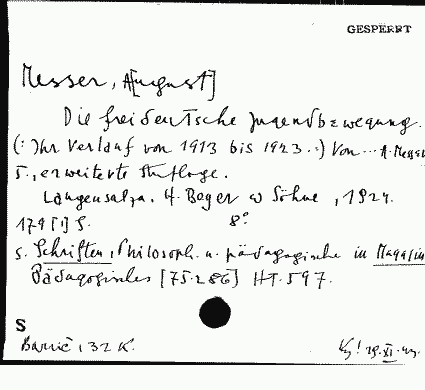 GESPERRT
Messer, A[ugust]
Die freideutsche Jugendbewegung.
(: Ihr Verlauf von 1913 bis 1923. :) Von ... A. Messer
5., erweiterte Auflage.
Langensalza. H. Beyer & Söhne, 1924.
179 [1] S. 8°
s. Schriften, Philosoph. u. pädagogische in Magazin
Pädagogisches [75.286] HT. 597.
S
32 K.